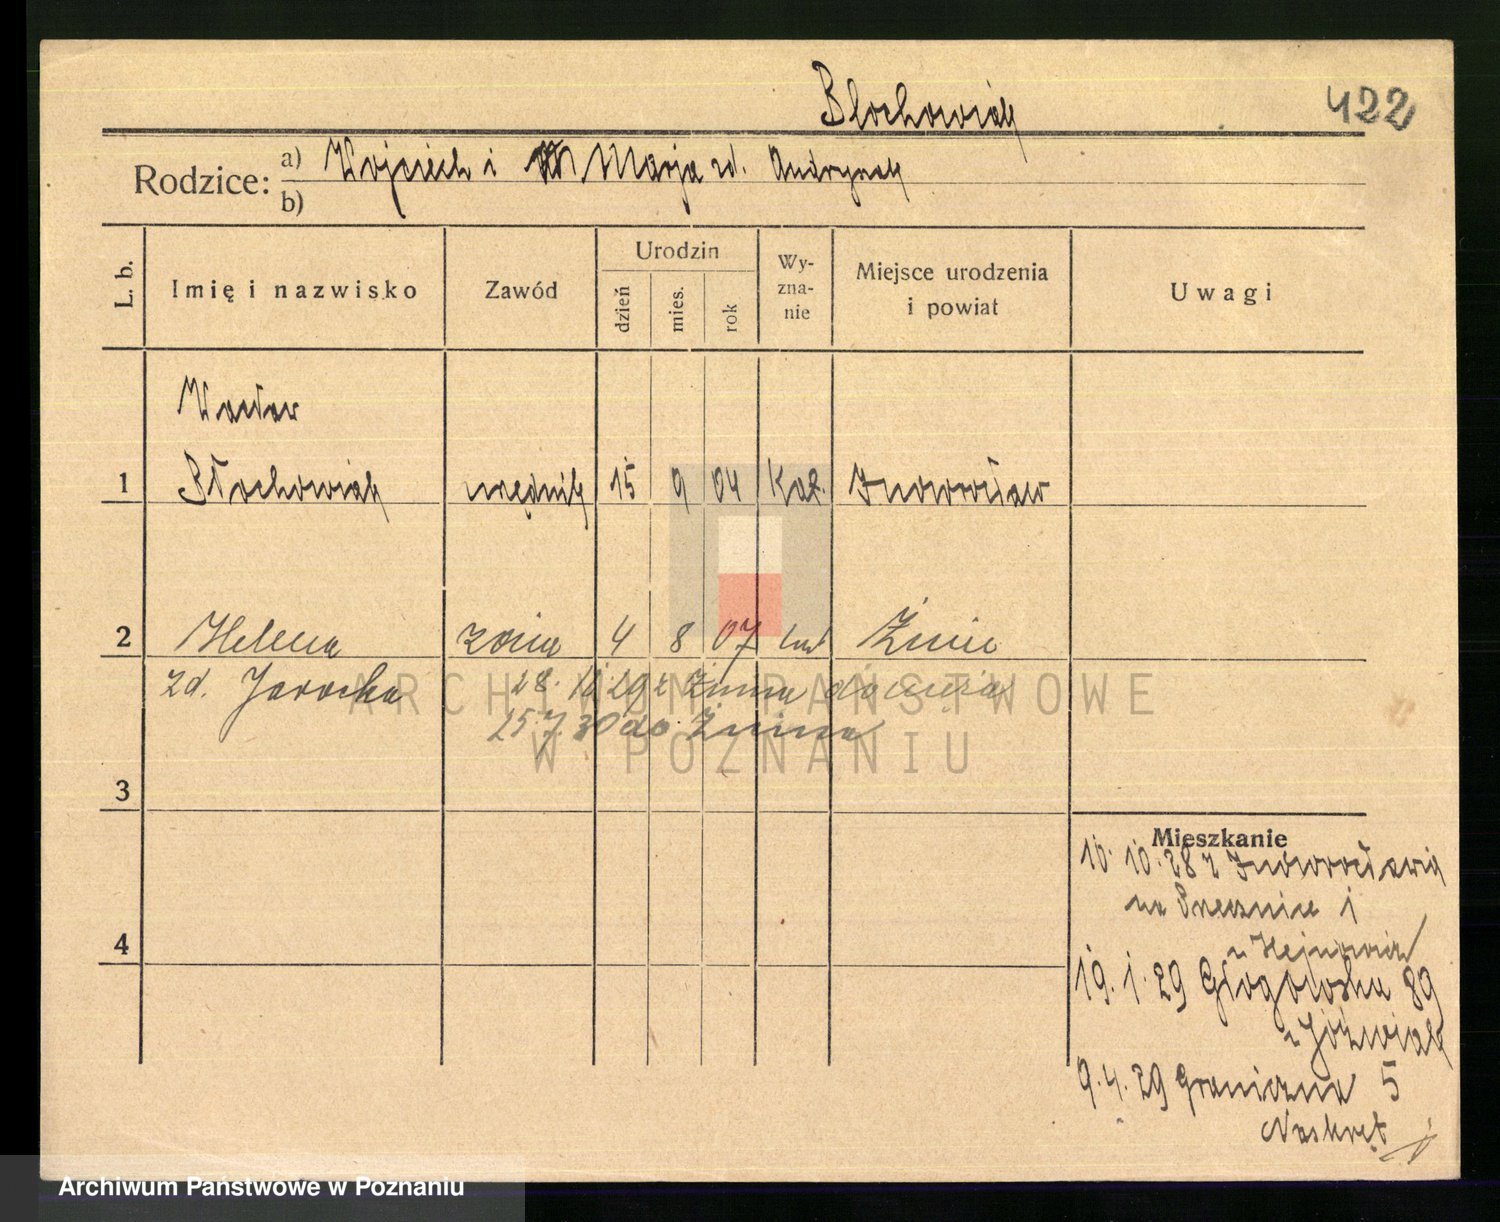 Błochowiak
422
Rodzice: a) Wojciech i Marja zd. Andrzejak
b)
L. b.
Imię i nazwisko
Zawód
Urodzin
dzień
mies.
rok
Wy-
zna-
nie
Miejsce urodzenia
i powiat
Uwagi
Wacław
1 Błochowiak urzędnik 15 9 04 kat. Inowrocław
2 Helena żona 4 8 07 Żnin
zd. Jarocka 28. 29 z Żnina do męża
15.7.30 do Żnina
3
Mieszkanie
10. 10. 28 z Inowrocławia
na 1
u
4
19. 1. 29 Głogowska 89
u Jóźwiak
9. 4. 29 Graniczna 5
Naskręt
ARCHIWUM PAŃSTWOWE
W POZNANIU
Archiwum Państwowe w Poznaniu